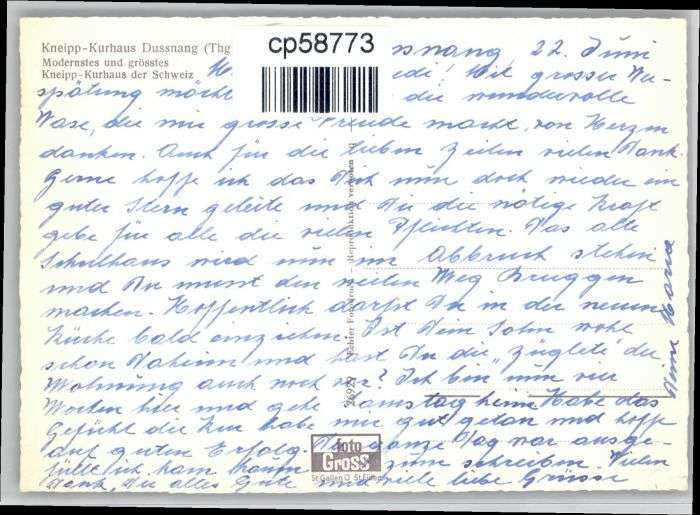 Kneipp-Kurhaus Dussnang (Thg
Modernstes und grösstes
Kneipp-Kurhaus der Schweiz
cp58773
ssnang 22. Juni
edi! Mit grosser Ver-
spätung möcht die wundervolle
Vase, die mir grosse Freude macht, von Herzen
danken. Auch für die lieben Zeilen vielen Dank.
Gerne hoffe ich das Dich nun doch wieder ein
guter Stern geleite und Dir die nötige Kraft
gebe für alle die vielen Pflichten. Das alte
Schulhaus wird nun im Abbruch stehen
und Du musst den weiten Weg Bruggen
machen. Hoffentlich darfst Du in die neue
Küche bald einziehen. Ist Dein Sohn wohl
schon daheim und hast Du die „Züglete" der
Wohnung auch noch vor? Ich bin nun vier
Wochen hier und gehe Samstag heim. Habe das
Gefühl die Kur habe mir gut getan und hoffe
auf guten Erfolg. Der ganze Tag war ausge-
füllt ich kam kaum zum schreiben. Vielen
Dank, Dir alles Gute und viele liebe Grüsse
Deine Maria
26929
Reproduktion verboten
foto
GROSS
St Gallen O